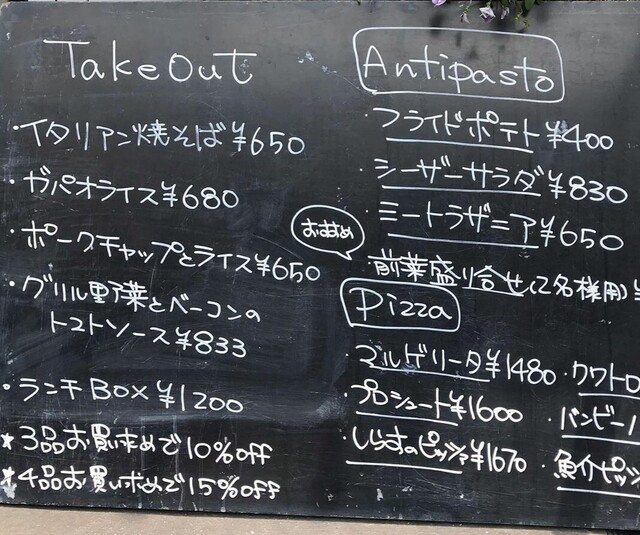 Take Out
・イタリアン焼そば¥650
・ガパオライス¥680
・ポークチャップとライス¥650
・グリル野菜とベーコンの
トマトソース¥833
・ランチBOX ¥1200
★3品お買い求めで10%off
★4品お買い求めで15%off
Antipasto
・フライドポテト¥400
・シーザーサラダ¥830
・ミートラザニア¥650
おすすめ
・前菜盛り合せ(2名様用)¥
Pizza
・マルゲリータ¥1480
・プロシュート¥1600
・しらすのピッツァ¥1670
・クワトロ
・バンビーノ
・魚介ピッツ